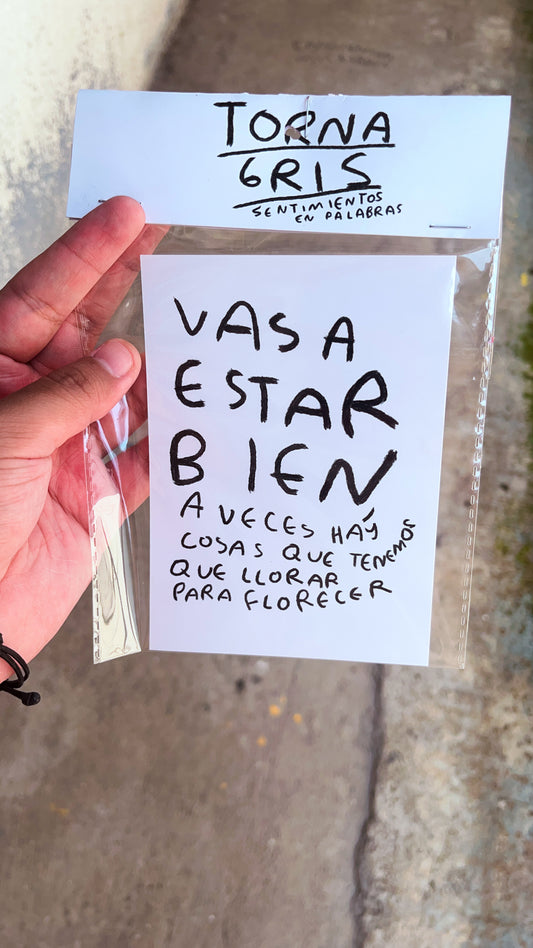 TORNA
GRIS
SENTIMIENTOS
EN PALABRAS
VAS A
ESTAR
BIEN
A VECES HAÝ
COSAS QUE TENEMOS
QUE LLORAR
PARA FLORECER